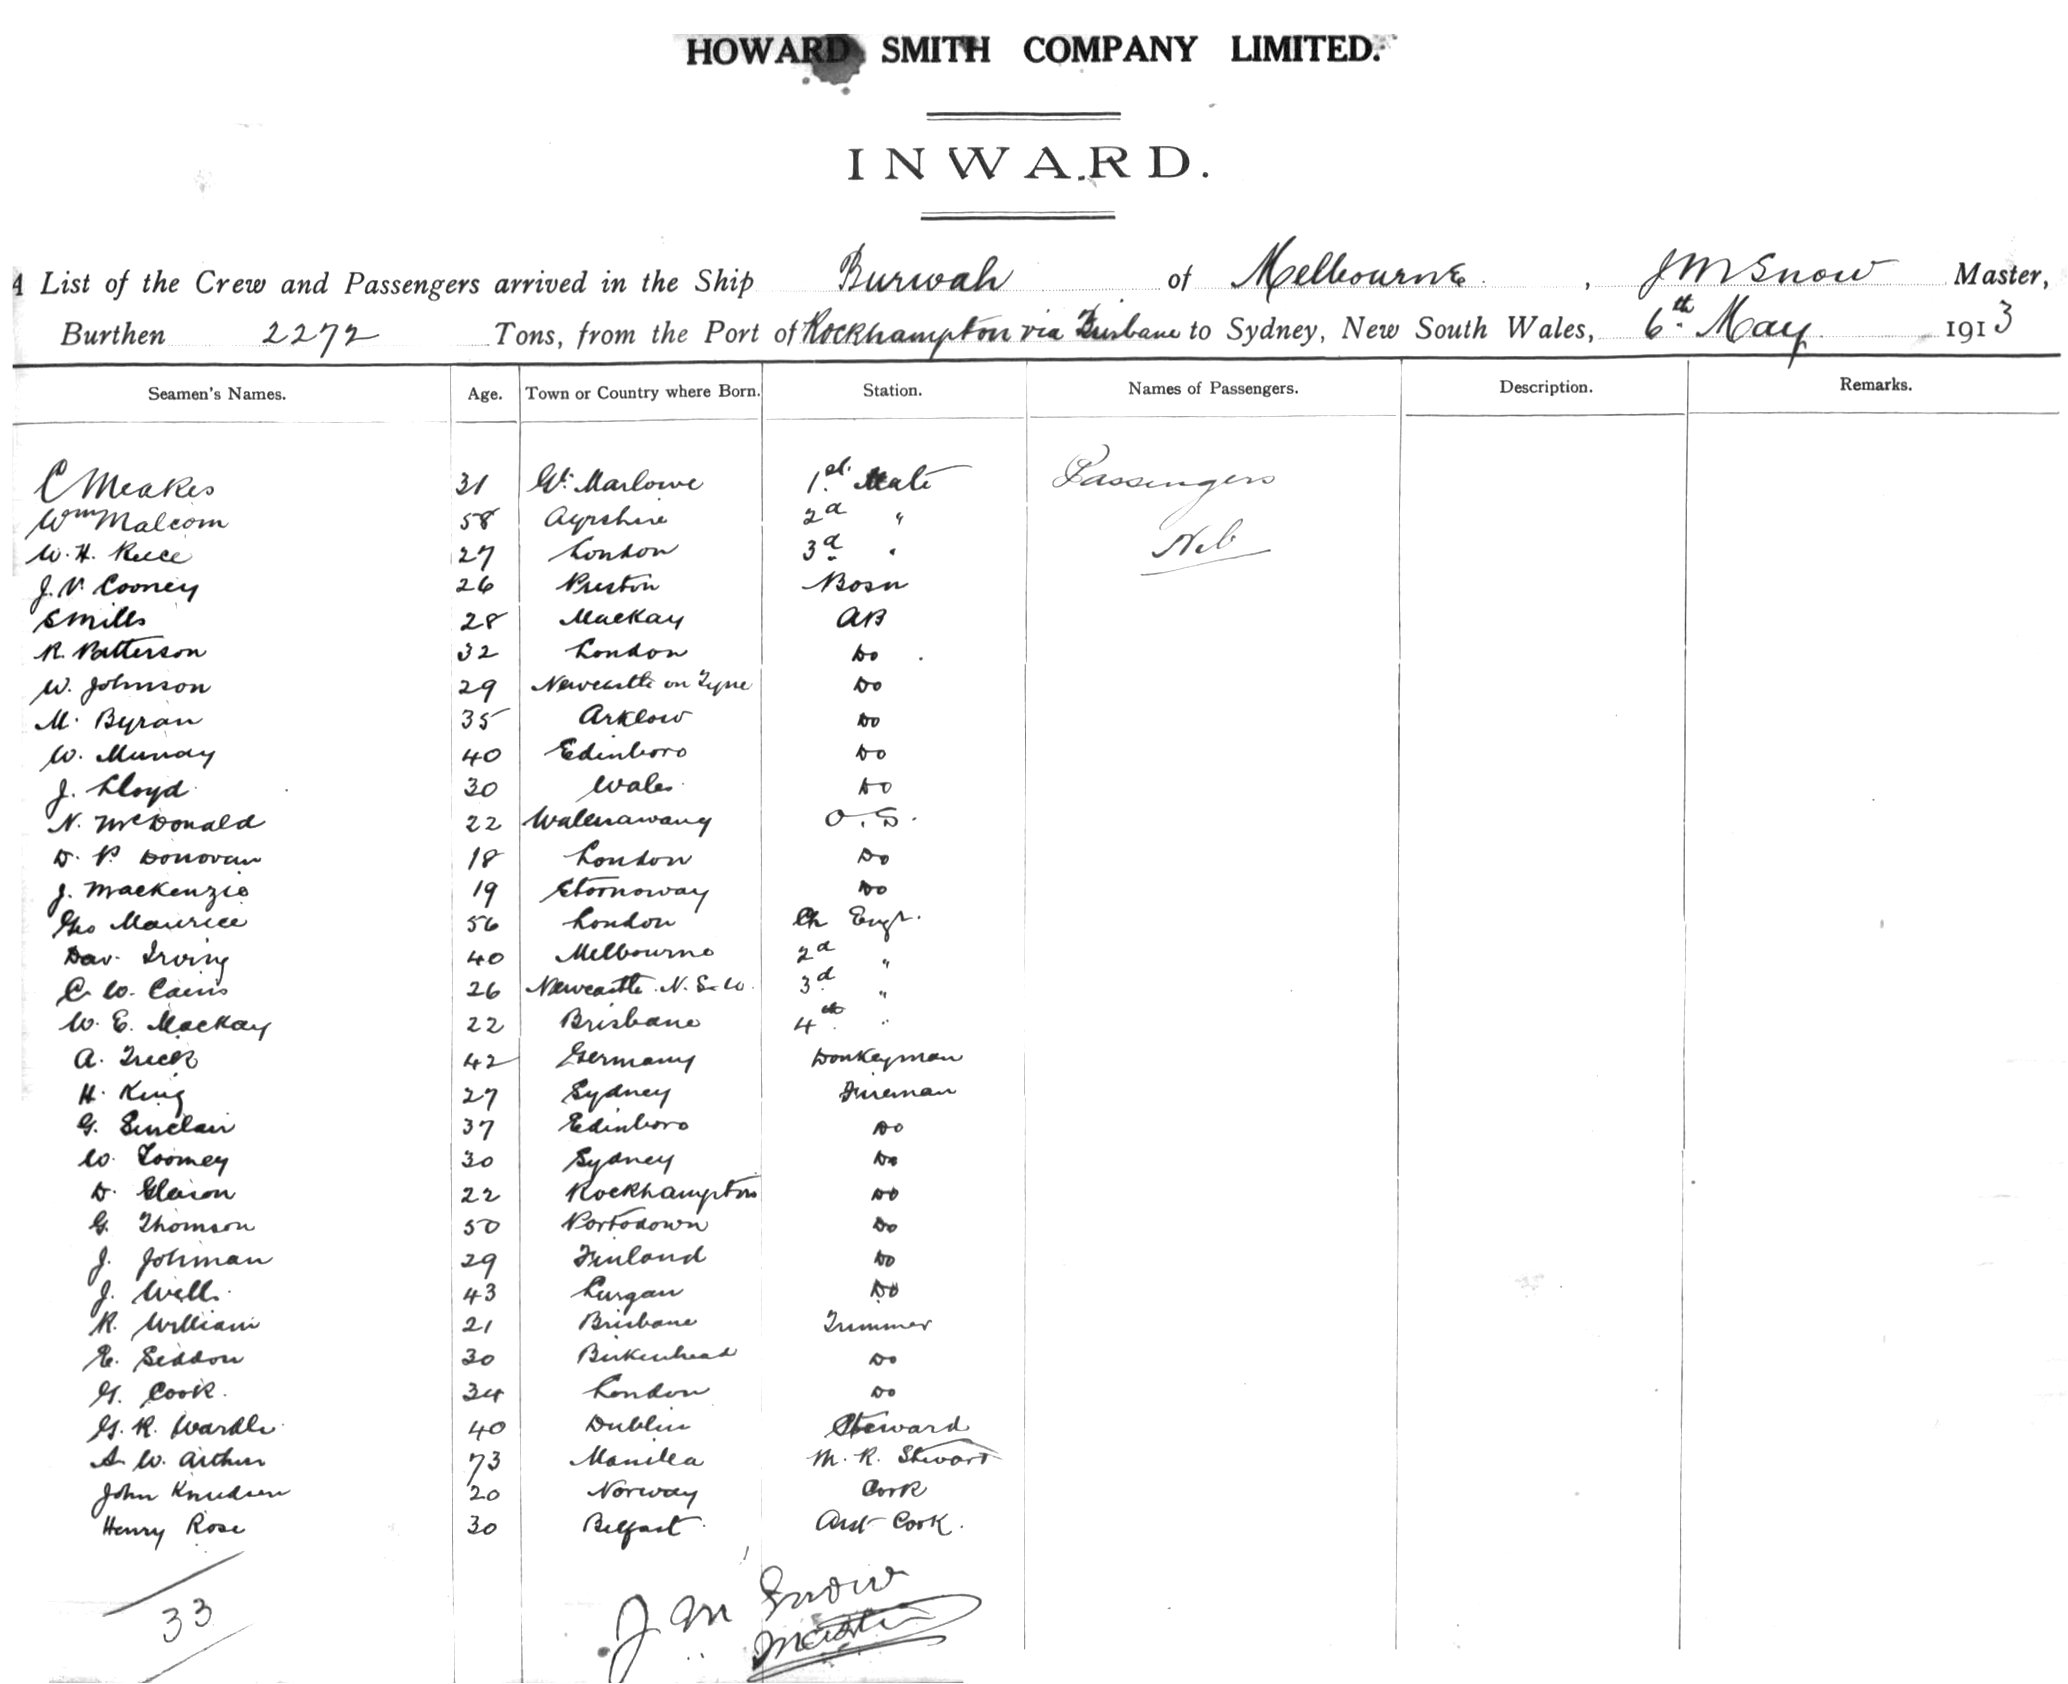 HOWARD SMITH COMPANY LIMITED.
INWARD.
A List of the Crew and Passengers arrived in the Ship Burwah of Melbourne, J M Snow Master,
Burthen 2272 Tons, from the Port of Rockhampton via Brisbane to Sydney, New South Wales, 6th May 1913
Seamen's Names. Age. Town or Country where Born. Station. Names of Passengers. Description. Remarks.
C Meakes 31 Gt. Marlowe 1st. Mate Passengers
Wm Malcom 58 Ayrshire 2d "
W. H. Reece 27 London 3d " Nil
J. V. Cooney 26 Preston Bosn
S Mills 28 Mackay AB
R. Patterson 32 London Do
W. Johnson 29 Newcastle on Tyne Do
M. Byran 35 Arklow Do
W. Munday 40 Edinboro Do
J. Lloyd 30 Wales Do
N. McDonald 22 Wallerawang O.S.
D. P. Donovan 18 London Do
J. Mackenzie 19 Stornoway Do
Geo Maurice 56 London Ch Engr.
Dav. Irving 40 Melbourne 2d "
C. W. Cains 26 Newcastle N.S.W. 3d "
W. E. Mackay 22 Brisbane 4th "
A. 42 Germany Donkeyman
H. King 27 Sydney Fireman
G. Sinclair 37 Edinboro Do
W. Toomey 30 Sydney Do
D. Gleeson 22 Rockhampton Do
G. Thomson 50 Portodown Do
J. Johman 29 Finland Do
J. Wells 43 Lurgan Do
R. William 21 Brisbane Trimmer
E. Seddon 30 Birkenhead Do
G. Cook. 34 London Do
G. R. Wardle 40 Dublin Steward
A. W. Arthur 73 Manilla M. R. Steward
John Knudsen 20 Norway Cook
Henry Rose 30 Belfast Asst Cook.
33
J M Snow
Master